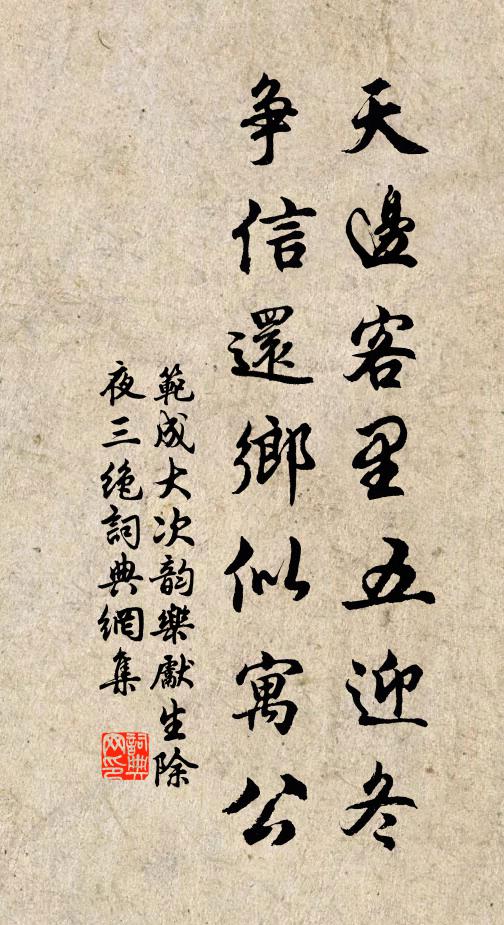 天邊客里五迎冬
爭信還鄉似寓公
範成大次韵樂獻生除
夜三绝詞典網集
詞典
网印